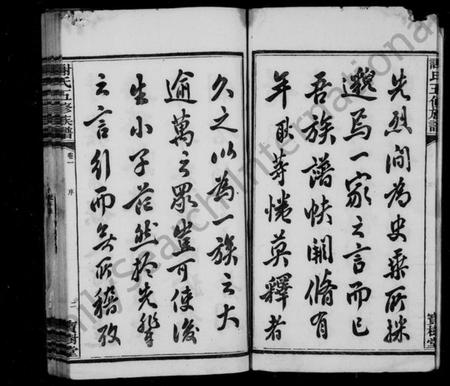 謝氏五修族譜
寶樹堂
先烈間為史乘所採
邈焉一家之言而已
吾族譜帙闕脩有
年耿等惓莫釋者
久之以為一族之大
逾萬之眾豈可使後
生小子茫然於先輩
之言行而無所稽攷
謝氏五修族譜
卷一
序
二
寶樹堂
My Search International